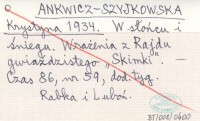 ANKWICZ-SZYJKOWSKA
Krystyna 1934. W słońcu i
śniegu. Wrażenia z Rajdu
gwiaździstego „Skimki" –
Czas 86, nr 59, dod. tyg.
Rabka i Luboń.
BT/008/0400